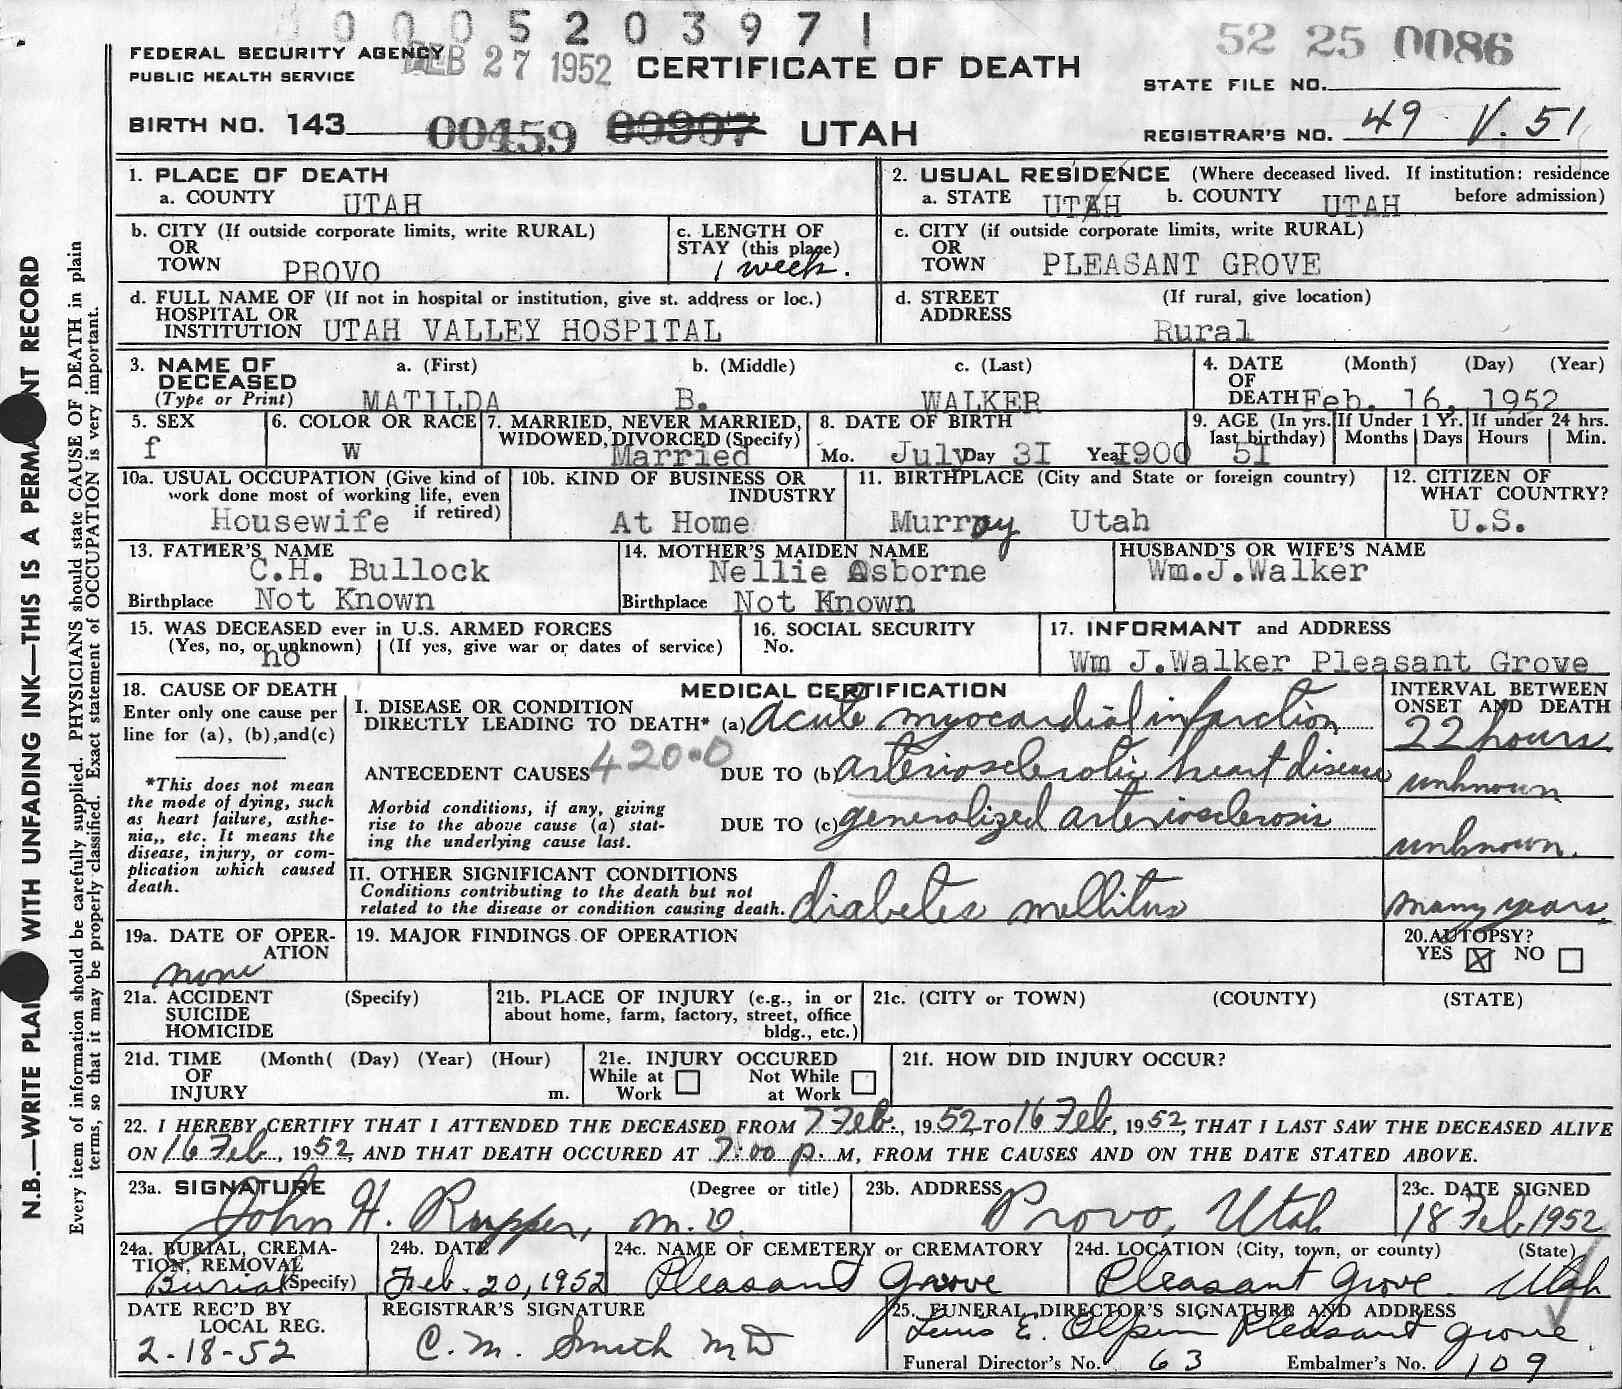 0 0 0 5 2 0 3 9 7 1
52 25 0086
FEDERAL SECURITY AGENCY
PUBLIC HEALTH SERVICE
FEB 27 1952
CERTIFICATE OF DEATH
STATE FILE NO.
BIRTH NO. 143 00459 00907 UTAH
REGISTRAR'S NO. 49 V. 51
1. PLACE OF DEATH
a. COUNTY UTAH
2. USUAL RESIDENCE (Where deceased lived. If institution: residence before admission)
a. STATE UTAH b. COUNTY UTAH
b. CITY (If outside corporate limits, write RURAL)
OR
TOWN PROVO
c. LENGTH OF
STAY (this place)
1 week.
c. CITY (if outside corporate limits, write RURAL)
OR
TOWN PLEASANT GROVE
d. FULL NAME OF (If not in hospital or institution, give st. address or loc.)
HOSPITAL OR
INSTITUTION UTAH VALLEY HOSPITAL
d. STREET (If rural, give location)
ADDRESS
Rural
3. NAME OF
DECEASED
(Type or Print)
a. (First) b. (Middle) c. (Last)
MATILDA B. WALKER
4. DATE (Month) (Day) (Year)
OF
DEATH Feb. 16, 1952
5. SEX
f
6. COLOR OR RACE
W
7. MARRIED, NEVER MARRIED,
WIDOWED, DIVORCED (Specify)
Married
8. DATE OF BIRTH
Mo. July Day 3I Year I900
9. AGE (In yrs.
last birthday)
5I
If Under 1 Yr.
Months Days
If under 24 hrs.
Hours Min.
10a. USUAL OCCUPATION (Give kind of
work done most of working life, even
if retired)
Housewife
10b. KIND OF BUSINESS OR
INDUSTRY
At Home
11. BIRTHPLACE (City and State or foreign country)
Murray Utah
12. CITIZEN OF
WHAT COUNTRY?
U.S.
13. FATHER'S NAME
C.H. Bullock
Birthplace Not Known
14. MOTHER'S MAIDEN NAME
Nellie Osborne
Birthplace Not Known
HUSBAND'S OR WIFE'S NAME
Wm.J.Walker
15. WAS DECEASED ever in U.S. ARMED FORCES
(Yes, no, or unknown) (If yes, give war or dates of service)
no
16. SOCIAL SECURITY
No.
17. INFORMANT and ADDRESS
Wm J.Walker Pleasant Grove
18. CAUSE OF DEATH
Enter only one cause per
line for (a), (b),and(c)
*This does not mean
the mode of dying, such
as heart failure, asthe-
nia,, etc. It means the
disease, injury, or com-
plication which caused
death.
MEDICAL CERTIFICATION
I. DISEASE OR CONDITION
DIRECTLY LEADING TO DEATH* (a) acute myocardial infarction
ANTECEDENT CAUSES 420.0 DUE TO (b) arteriosclerotic heart disease
Morbid conditions, if any, giving
rise to the above cause (a) stat-
ing the underlying cause last.
DUE TO (c) generalized arteriosclerosis
II. OTHER SIGNIFICANT CONDITIONS
Conditions contributing to the death but not
related to the disease or condition causing death. diabetes mellitus
INTERVAL BETWEEN
ONSET AND DEATH
22 hours
unknown
unknown.
many years
19a. DATE OF OPER-
ATION
none
19. MAJOR FINDINGS OF OPERATION
20. AUTOPSY?
YES X NO
21a. ACCIDENT (Specify)
SUICIDE
HOMICIDE
21b. PLACE OF INJURY (e.g., in or
about home, farm, factory, street, office
bldg., etc.)
21c. (CITY or TOWN) (COUNTY) (STATE)
21d. TIME (Month( (Day) (Year) (Hour)
OF
INJURY m.
21e. INJURY OCCURED
While at Not While
Work at Work
21f. HOW DID INJURY OCCUR?
22. I HEREBY CERTIFY THAT I ATTENDED THE DECEASED FROM 7 Feb., 1952, TO 16 Feb, 1952, THAT I LAST SAW THE DECEASED ALIVE
ON 16 Feb, 1952, AND THAT DEATH OCCURED AT 7:00 p. M, FROM THE CAUSES AND ON THE DATE STATED ABOVE.
23a. SIGNATURE (Degree or title)
John H. Rupper, M.D.
23b. ADDRESS
Provo, Utah
23c. DATE SIGNED
18 Feb 1952
24a. BURIAL, CREMA-
TION, REMOVAL
Burial (Specify)
24b. DATE
Feb. 20, 1952
24c. NAME OF CEMETERY or CREMATORY
Pleasant Grove
24d. LOCATION (City, town, or county) (State)
Pleasant Grove. Utah
DATE REC'D BY
LOCAL REG.
2-18-52
REGISTRAR'S SIGNATURE
C. M. Smith MD
25. FUNERAL DIRECTOR'S SIGNATURE AND ADDRESS
E. Olpin Pleasant Grove.
Funeral Director's No. 63 Embalmer's No. 109
N.B.—WRITE PLAI WITH UNFADING INK—THIS IS A PERMA NT RECORD
Every item of information should be carefully supplied. PHYSICIANS should state CAUSE OF DEATH in plain
terms, so that it may be properly classified. Exact statement of OCCUPATION is very important.